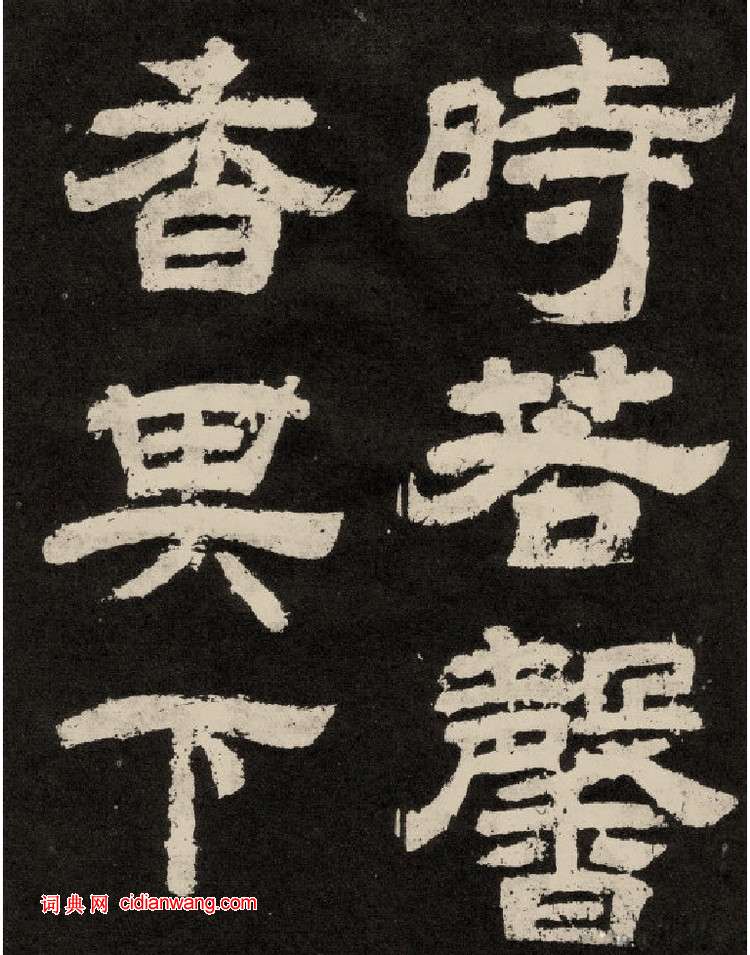 時若馨
香其下
词典网 cidianwang.com